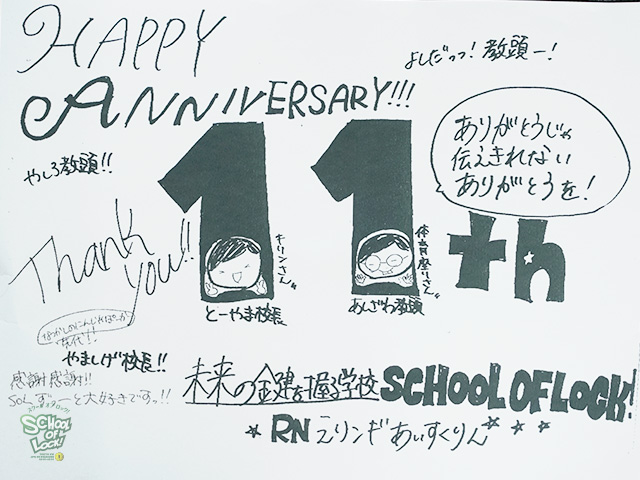 HAPPY
ANNIVERSARY!!!
よしだっっ!教頭ー!
やしろ教頭!!
11th
ありがとうじゃ
伝えきれない
ありがとうを!
Thank
you!!
キリンさん
とーやま校長
体育座りさん
あしざわ教頭
初代!!
やましげ校長!!
感謝感謝!!
SOLずーっと大好きですっ!!
未来の鍵を握る学校 SCHOOL OF LOCK!
RN エリンギあいすくりん
SCHOOL
OF
LOCK!